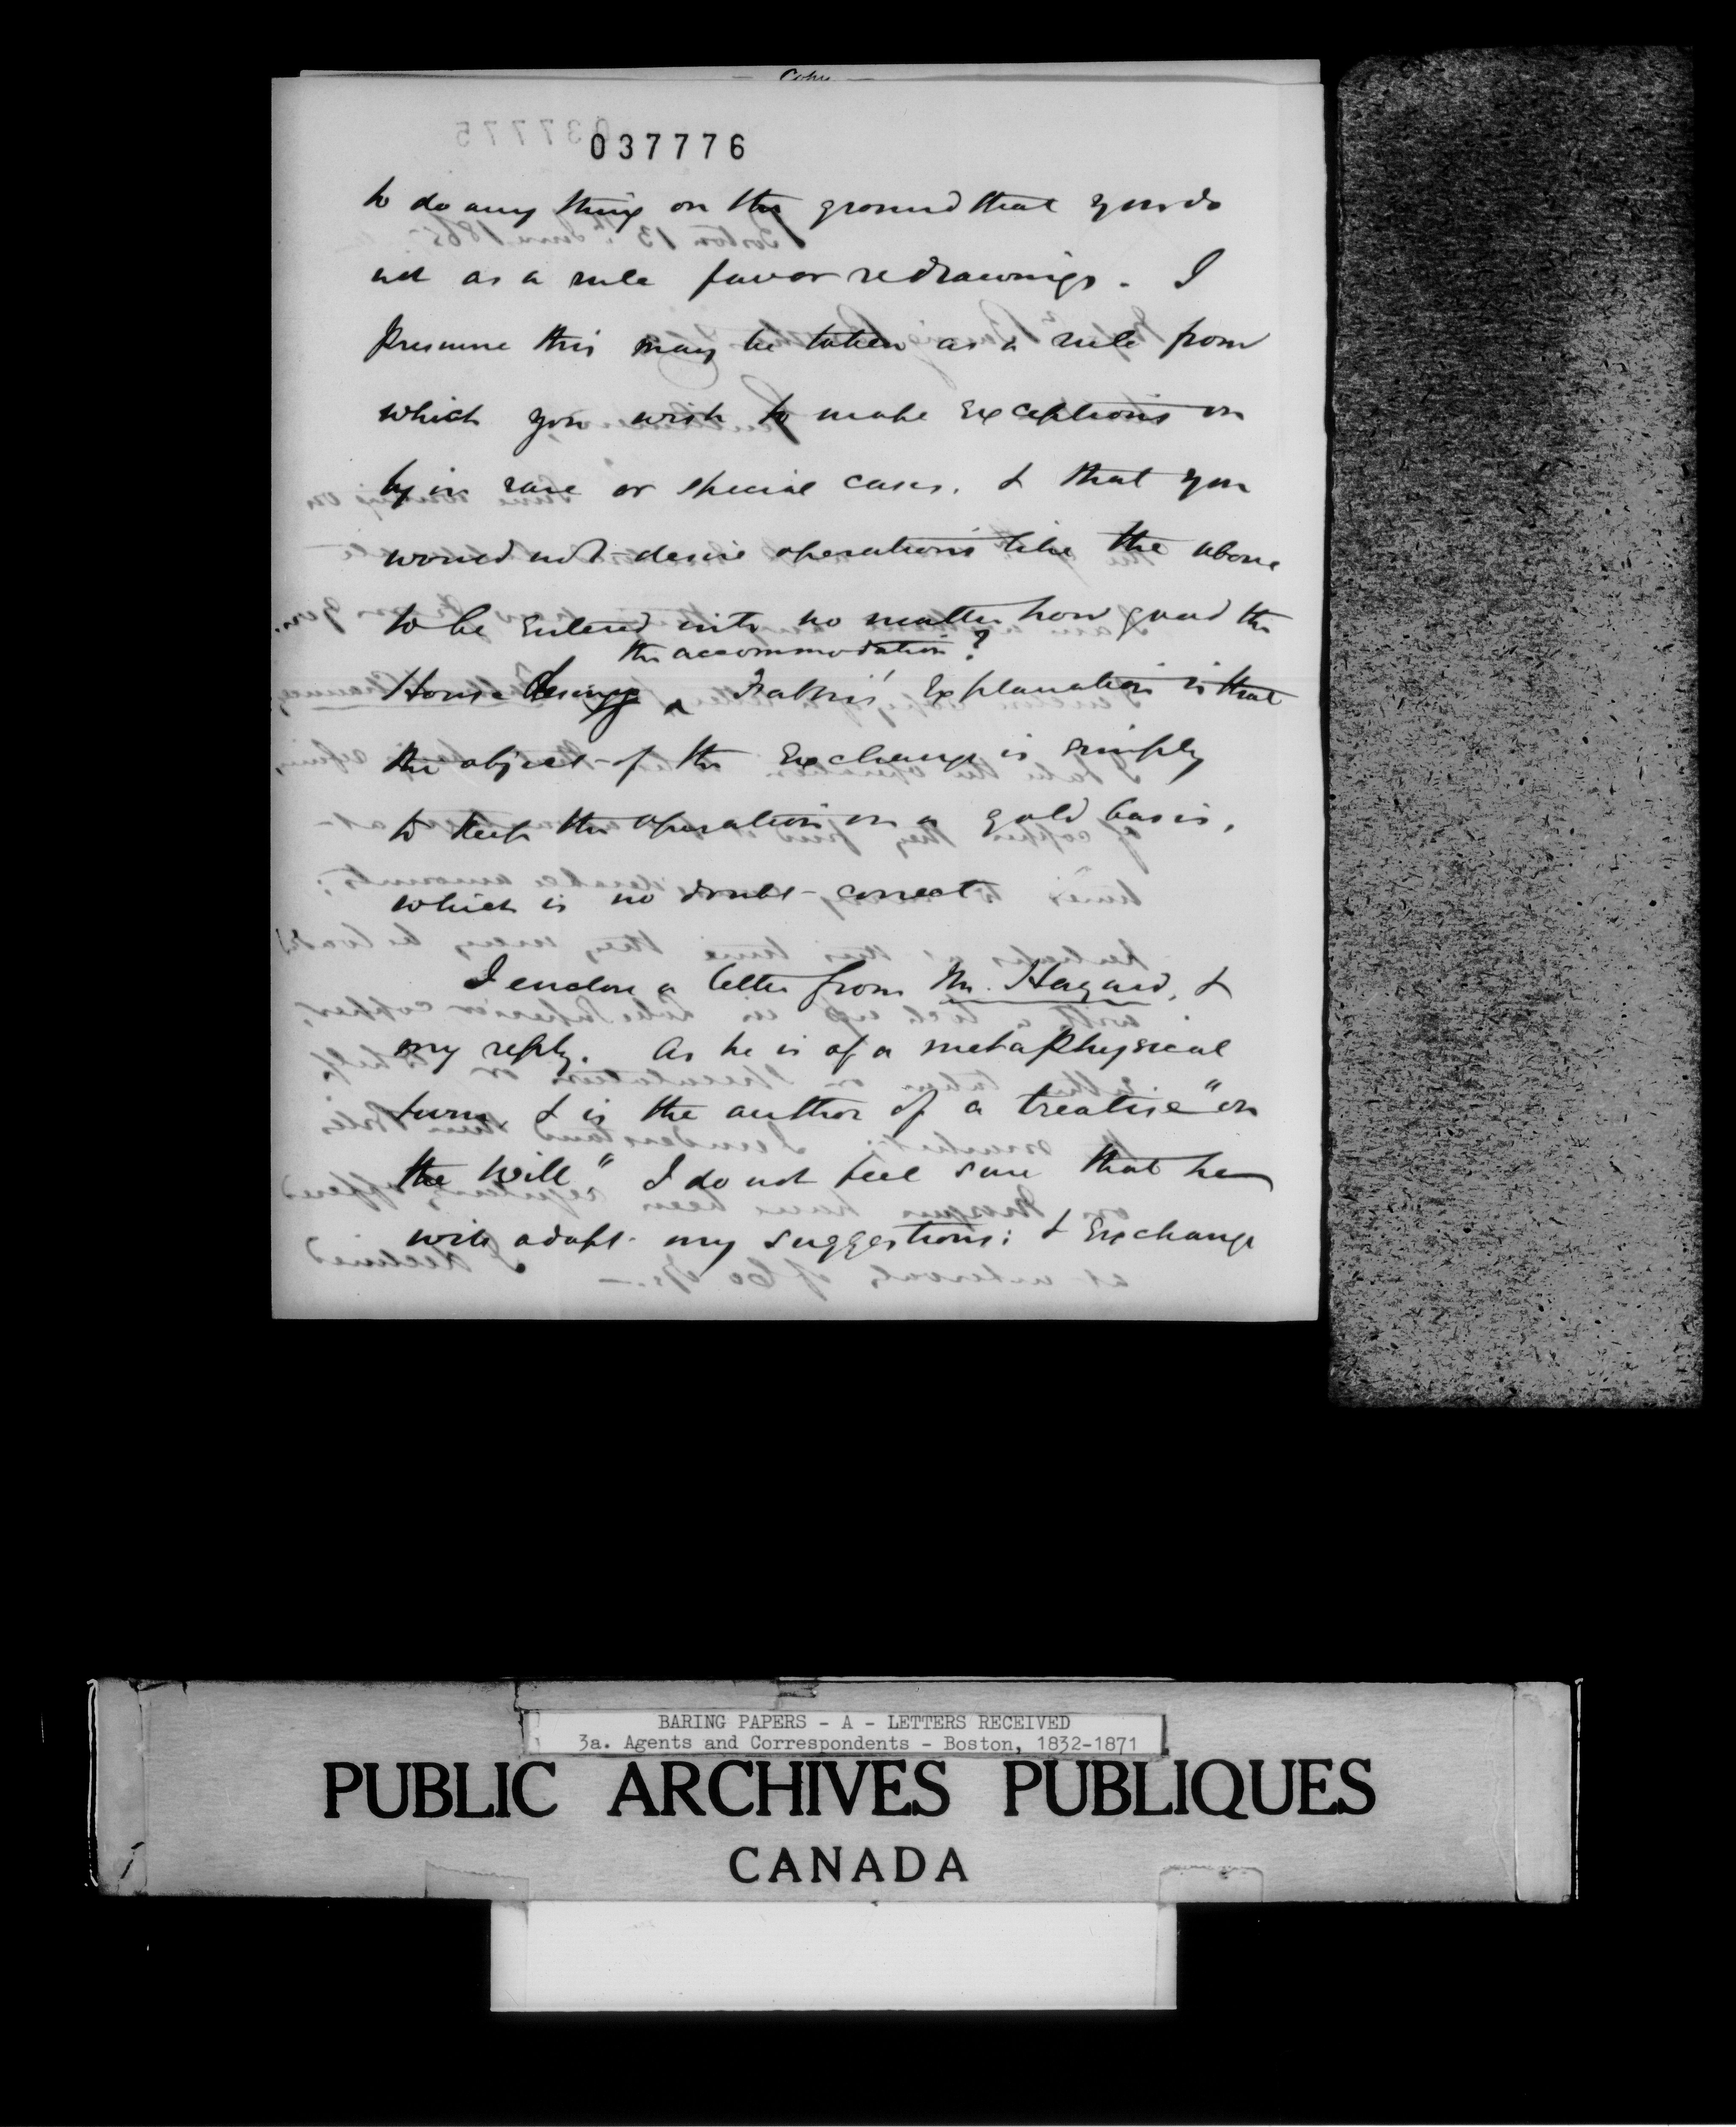 Copy
037775
037776
to do any thing on the ground that you do
not as a rule favor redrawings. I
presume this may be taken as a rule from
which you wish to make exceptions on
ly in rare or special cases. & that you
would not desire operations like the above
to be entered into no matter how good the
the accommodation?
House desiring Explanation is that
the object of the Exchange is simply
to keep the operation on a gold basis,
which is no doubt correct
I enclose a letter from Mr. Hazard, &
my reply. As he is of a metaphysical
turn, & is the author of a treatise "on
the Will" I do not feel sure that he
will adopt my suggestions; & Exchange
BARING PAPERS - A - LETTERS RECEIVED
3a. Agents and Correspondents - Boston, 1832-1871
PUBLIC ARCHIVES PUBLIQUES
CANADA